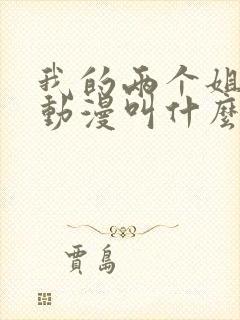 我的两个姐
動漫叫什麼
賈島